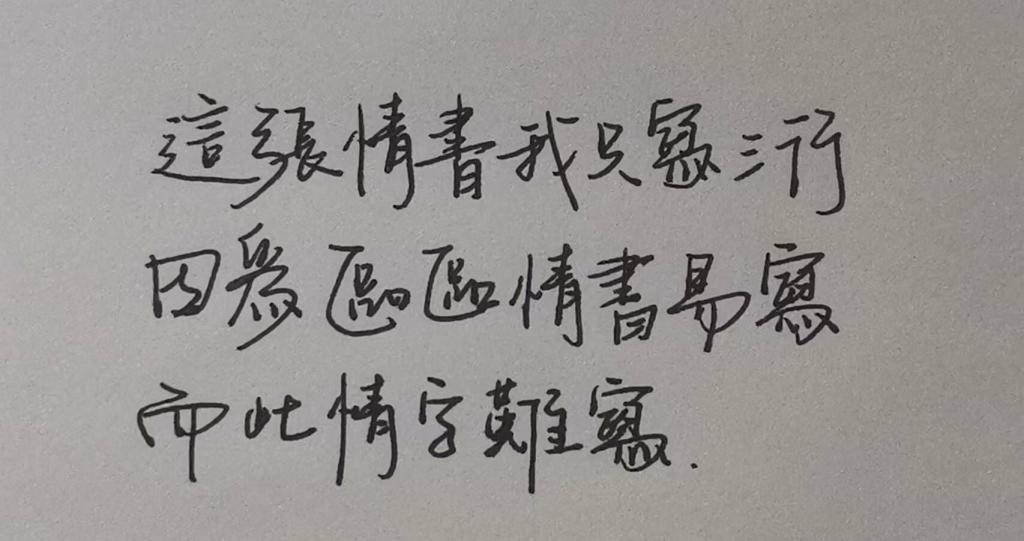 這張情書我只寫三行
因為區區情書易寫
而此情字難寫.